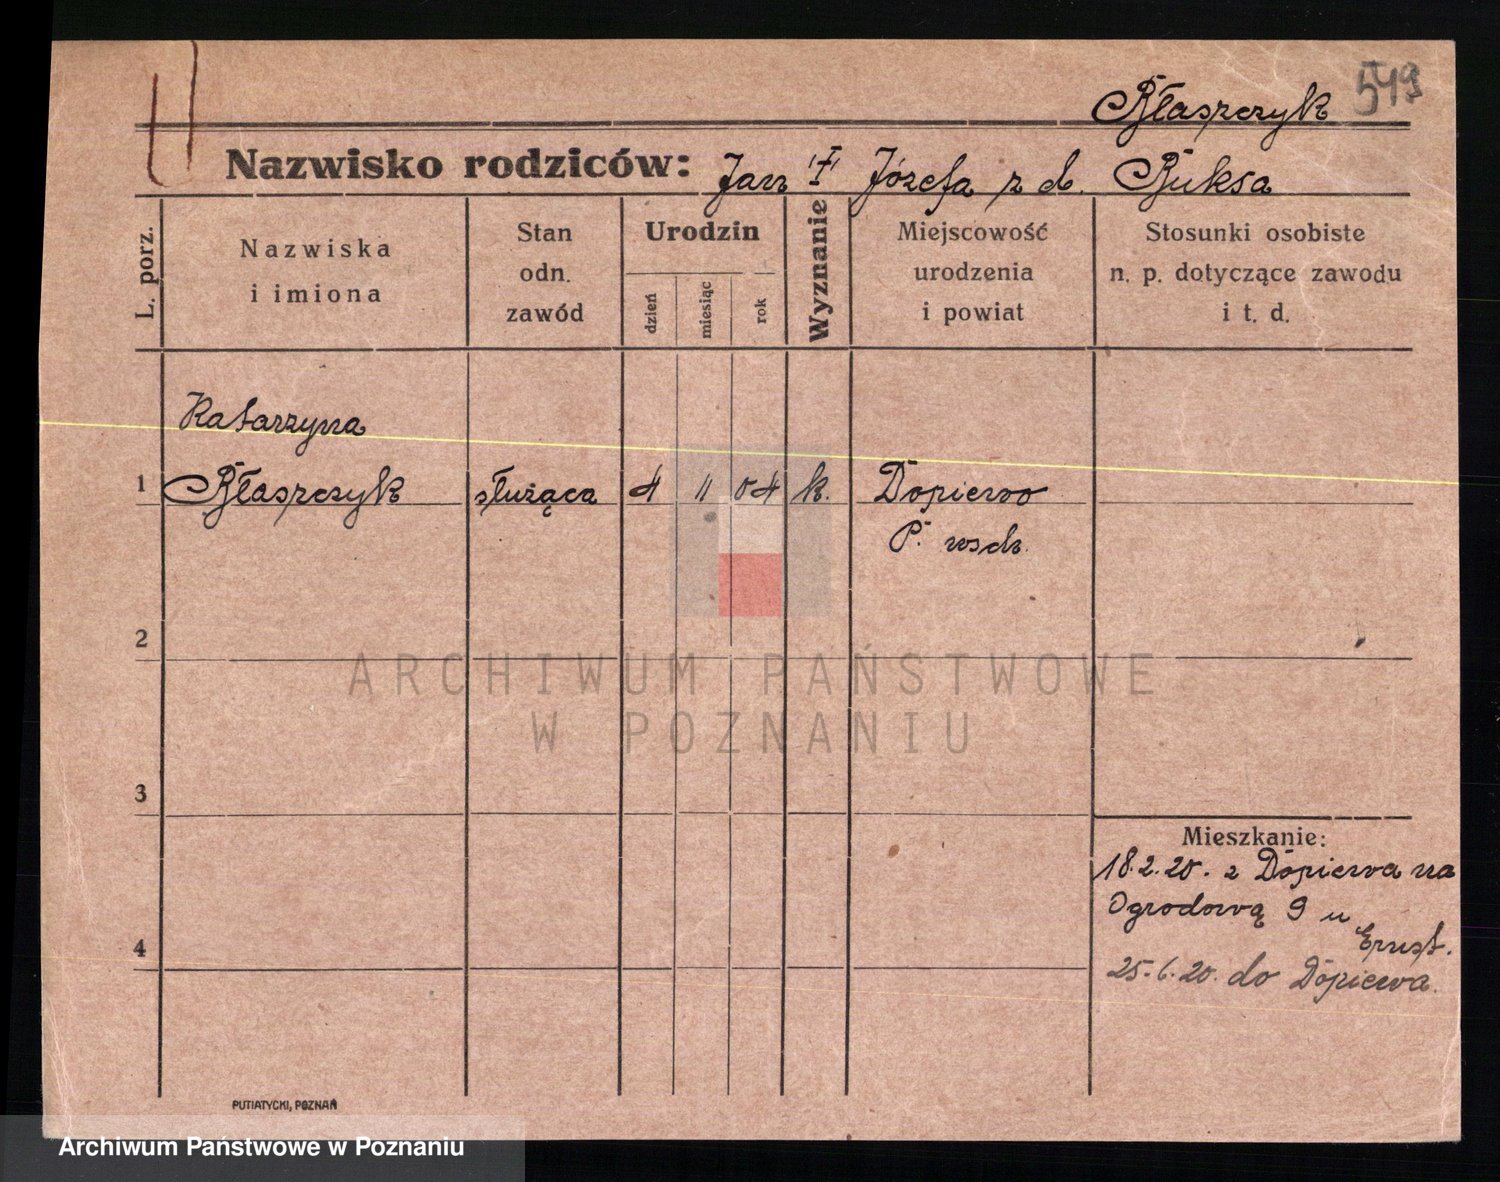 Błaszczyk 549
Nazwisko rodziców: Jan "†" Józefa z d. Buksa
L. porz.
Nazwiska
i imiona
Stan
odn.
zawód
Urodzin
dzień
miesiąc
rok
Wyznanie
Miejscowość
urodzenia
i powiat
Stosunki osobiste
n. p. dotyczące zawodu
i t. d.
Katarzyna
1 Błaszczyk służąca 4 11 04 k. Dopiewo
P. wsch.
2
3
4
Mieszkanie:
18.2.20. z Dopiewa na
Ogrodową 9 u
Ernst.
25.6.20. do Dopiewa.
PUTIATYCKI, POZNAŃ
ARCHIWUM PAŃSTWOWE
W POZNANIU
Archiwum Państwowe w Poznaniu